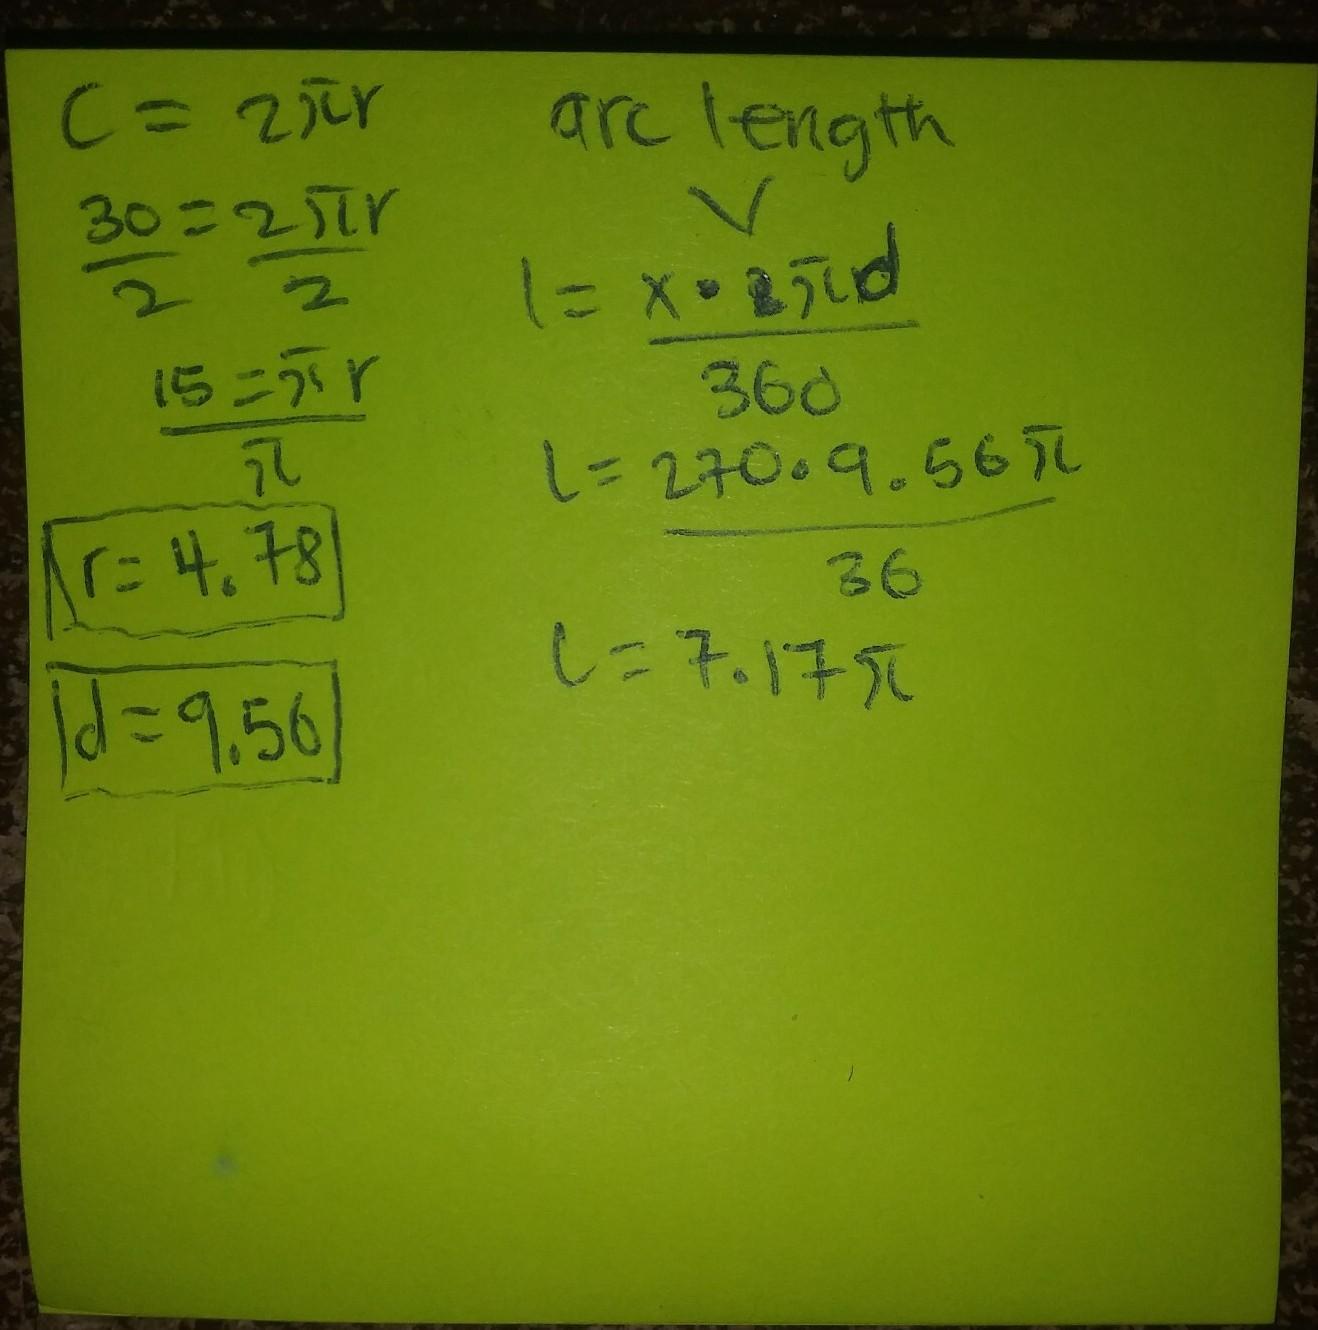 C = 2πr
30 = 2πr
2 2
15 = πr
π
r = 4.78
d = 9.56
arc length
l = x • πd
360
l = 270 • 9.56π
36
l = 7.17π